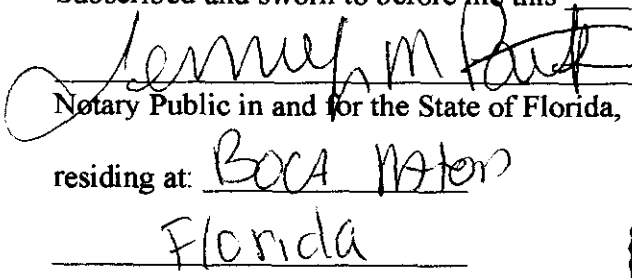 Subscribed and sworn to before me this
Notary Public in and for the State of Florida,
residing at: Boca Raton
Florida